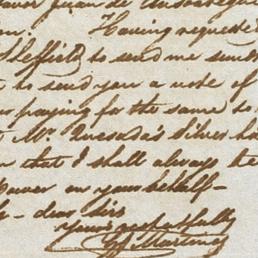 Juan de
Having requested
Sheffield to send me
to send you a note of
paying for the same to
Mr. Quesada's Silver
that I shall always be
in your behalf —
dear Sirs
Yours respectfully
Martinez